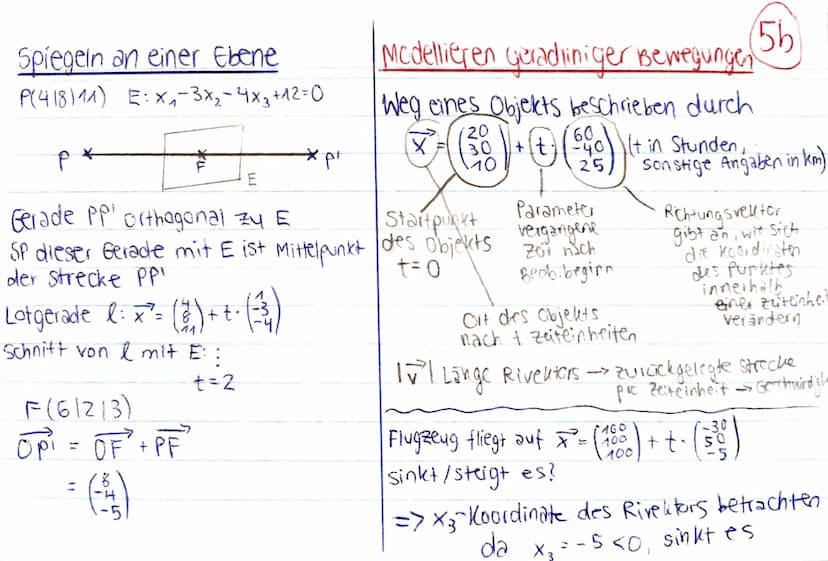 Spiegeln an einer Ebene
P(4|8|11) E: x₁-3x₂-4x₃+12=0
P F P' E
Gerade PP' orthogonal zu E
SP dieser Gerade mit E ist Mittelpunkt
der Strecke PP'
Lotgerade l: x⃗ = (4 8 11) + t · (1 -3 -4)
Schnitt von l mit E: ⋮
t=2
F(6|2|3)
OP'⃗ = OF⃗ + PF⃗
= (8 -4 -5)
5b
Modellieren geradliniger Bewegungen
Weg eines Objekts beschrieben durch
x⃗ = (20 30 10) + t · (60 -40 25) (t in Stunden,
sonstige Angaben in km)
Startpunkt
des Objekts
t=0
Parameter
vergangene
Zeit nach
Beob.beginn
Richtungsvektor
gibt an, wie sich
die Koordinaten
des Punktes
innerhalb
einer Zeiteinheit
verändern
Ort des Objekts
nach t Zeiteinheiten
|v⃗| Länge Rivektors → zurückgelegte Strecke
pro Zeiteinheit →
Flugzeug fliegt auf x⃗ = (100 100) + t · (-30 50 -5)
sinkt/steigt es?
=> x₃-Koordinate des Rivektors betrachten
da x₃ = -5 <0, sinkt es